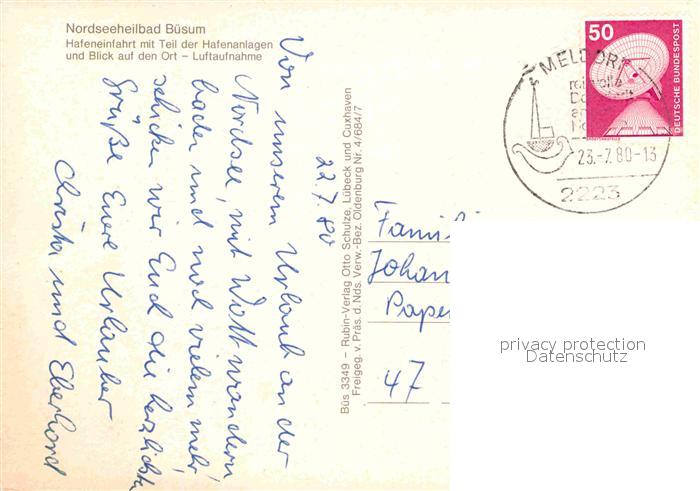 Nordseeheilbad Büsum
Hafeneinfahrt mit Teil der Hafenanlagen
und Blick auf den Ort – Luftaufnahme
22.7.80
Von unserem Urlaub an der
Nordsee, mit Wattwandern,
baden und noch vielem mehr,
schicken wir Euch die herzlichsten
Grüße Eure Urlauber
Christa und Eberhard
Büs 3349 – Rubin-Verlag Otto Schulze, Lübeck und Cuxhaven
Freigeg. v. Präs. d. Nds. Verw.-Bez. Oldenburg Nr. 4/684/7
50
DEUTSCHE BUNDESPOST
MELDORF
23.-7.80-13
2223
Famili
Johan
Pape
47
privacy protection
Datenschutz